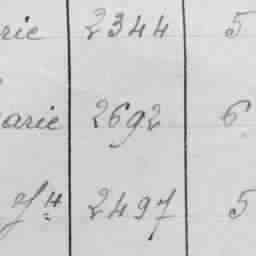 rie 2344 5
arie 2692 6
2497 5